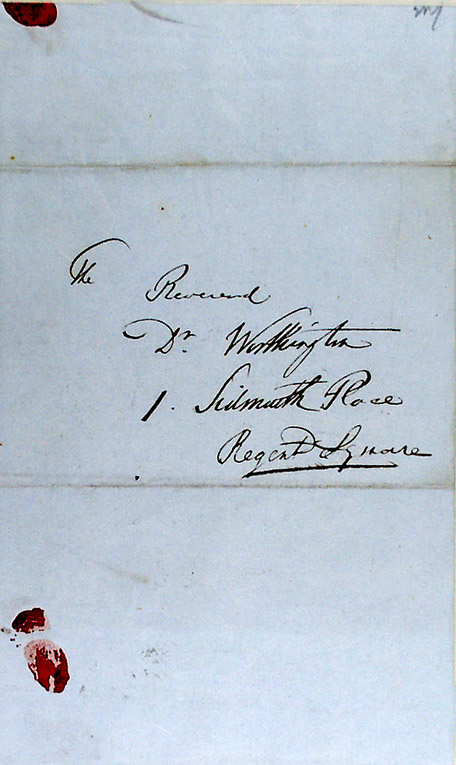 The Reverend
Dr. Worthington
1. Sidmouth Place
Regent Square